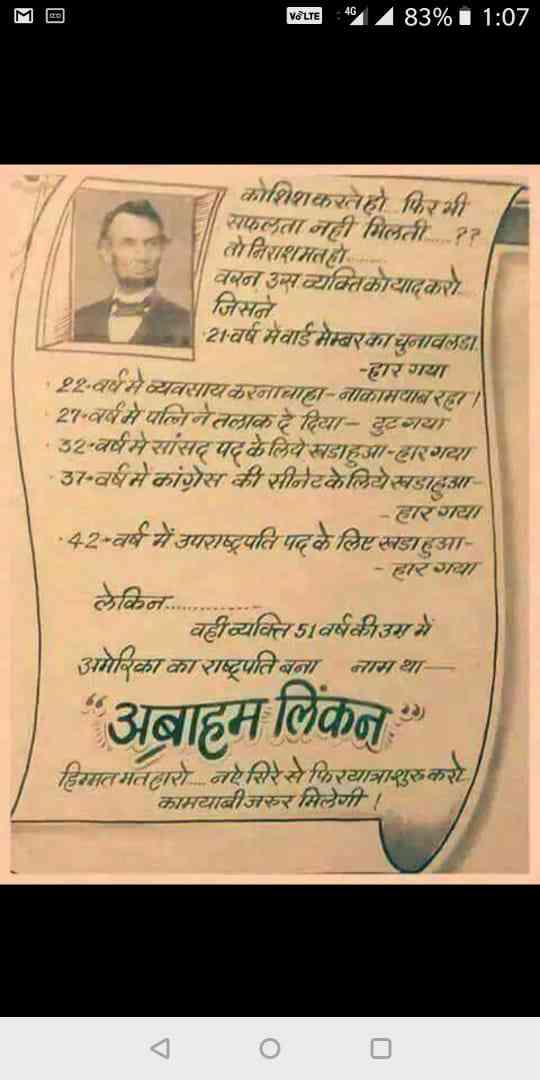 VoLTE 4G 83% 1:07
कोशिश करते हो.. फिर भी
सफलता नही मिलती.....??
तो निराश मत हो........
वरन उस व्यक्ति को याद करो..
जिसने
·21·वर्ष में वार्ड मेम्बर का चुनाव लडा.
-हार गया
·22·वर्ष में व्यवसाय करना चाहा- नाकामयाब रहा।
·27·वर्ष में पत्नि ने तलाक दे दिया- टुट गया
·32·वर्ष में सांसद पद के लिये खडा हुआ-हार गया
·37·वर्ष में कांग्रेस की सीनेट के लिये खडा हुआ-
-हार गया
·42·वर्ष में उपराष्ट्रपति पद के लिए खडा हुआ-
-हार गया
लेकिन..............
वही व्यक्ति 51 वर्ष की उम्र में
अमेरिका का राष्ट्रपति बना नाम था—
“अब्राहम लिंकन”
हिम्मत मत हारो.... नऐ सिरे से फिर यात्रा शुरु करो..
कामयाबी जरुर मिलेगी !